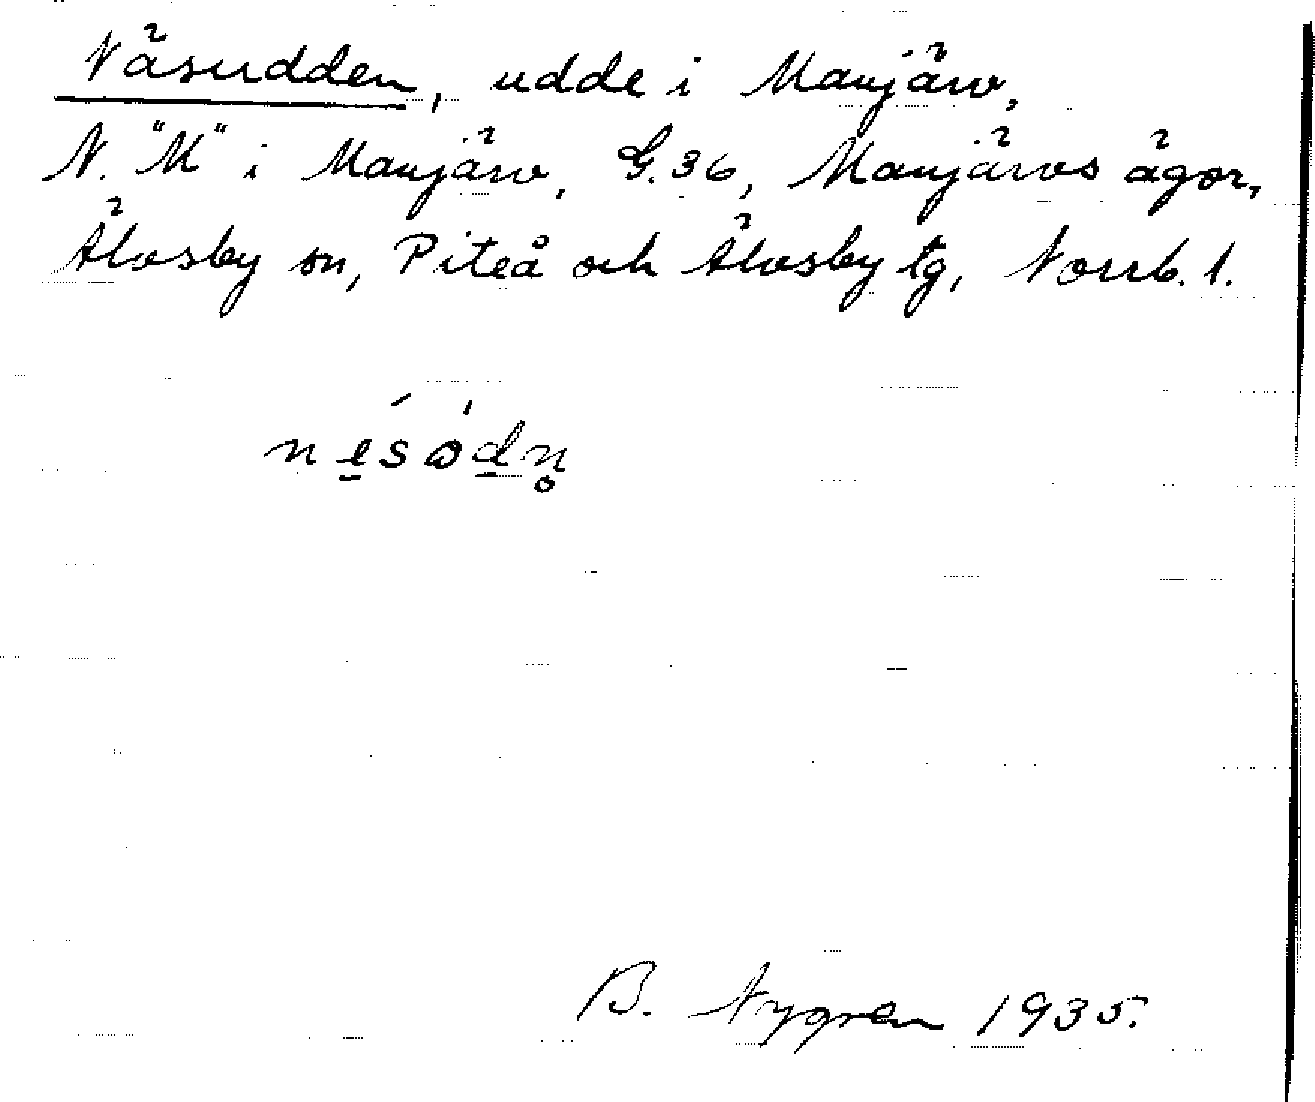 Näsudden, udde i Manjärv,
N. "M" i Manjärv, G.36, Manjärvs ägor,
Älvsby sn, Piteå och Älvsby tg, Norrb. l.
nesödn̥
B. Nygren 1935.